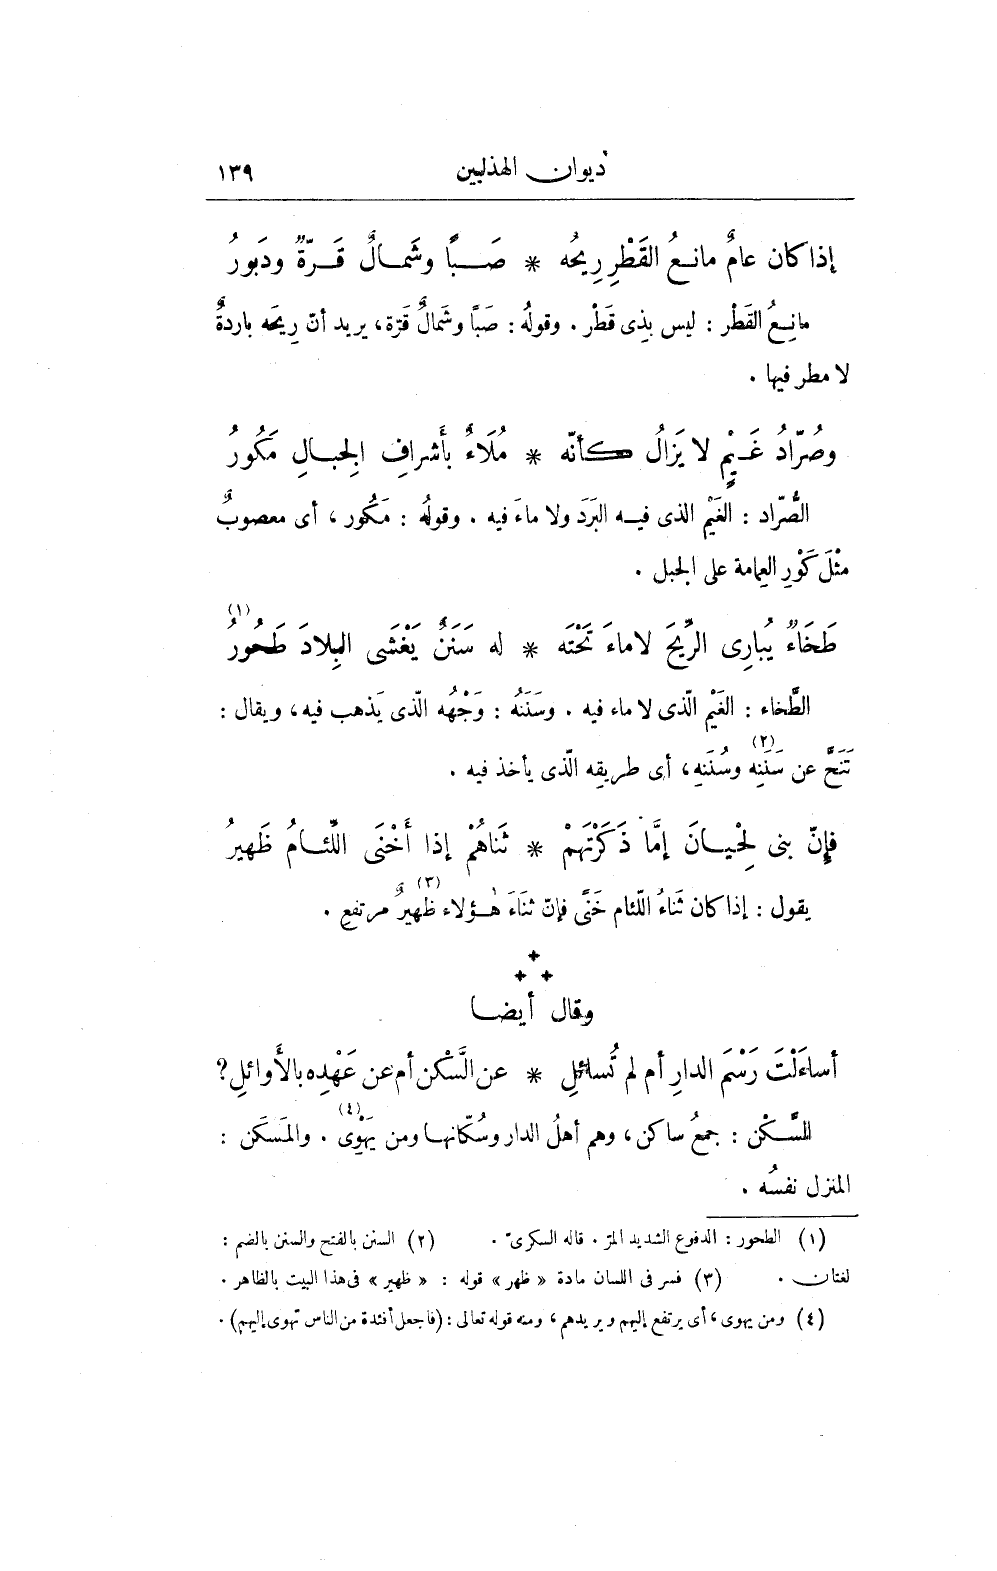 ديوان الهذليين ١٣٩
إذا كان عامٌ مانعُ القَطْرِ رِيحُه * صَبًا وشَمالٌ قَرّةٌ ودَبورُ
مانِعُ القَطْر : ليس بذِى قَطْر . وقولُه : صَبًا وشَمالٌ قَرّة، يريد أنّ رِيحَه باردةٌ
لا مطر فيها .
وصُرّادُ غَيْمٍ لا يَزالُ كأنّه * مُلَاءٌ بأَشرافِ الجبالِ مَكُورُ
الصُّرّاد : الغَيْم الذى فيه البَرَد ولا ماءَ فيه . وقولُه : مَكُور ، أى معصوبٌ
مثْلَ كَوْرِ العِمامة على الجبل .
طَخَاءٌ يُبارِى الرِّيحَ لا ماءَ تَحْتَه * له سَنَنٌ يَغْشَى البِلادَ طَحُورُ (١)
الطَّخاء : الغَيْم الّذى لا ماء فيه . وسَنَنُه : وَجْهُه الّذى يَذهب فيه، ويقال :
تَنَحَّ عن سَنَنِه (٢) وسُنَنِه، أى طريقِه الّذى يأخذ فيه .
فإنّ بنى لِحْيانَ إمَّا ذَكَرْتَهمْ * ثَناهُمْ إذا أَخْنَى اللِّئامُ ظَهيرُ
يقول : إذا كان ثَناءُ اللّئام خَنًى فإنّ ثَناءَ هٰؤلاء ظَهيرٌ (٣) مرتفع .
وقال أيضا
أساءَلْتَ رَسْمَ الدارِ أم لم تُسائلِ * عن السَّكْن أم عن عَهْدِه بالأَوائلِ؟
السَّكْن : جمعُ ساكن، وهم أهلُ الدار وسُكّانها ومن يَهْوِى (٤) . والمَسكَن :
المنزل نفسُه .
(١) الطحور : الدفوع الشديد المرّ . قاله السكرىّ . (٢) السنن بالفتح والسنن بالضم :
لغتان . (٣) فسر فى اللسان مادة « ظهر » قوله : « ظهير » فى هذا البيت بالظاهر .
(٤) ومن يهوى، أى يرتفع إليهم ويريدهم، ومنه قوله تعالى : (فاجعل أفئدة من الناس تهوى إليهم) .